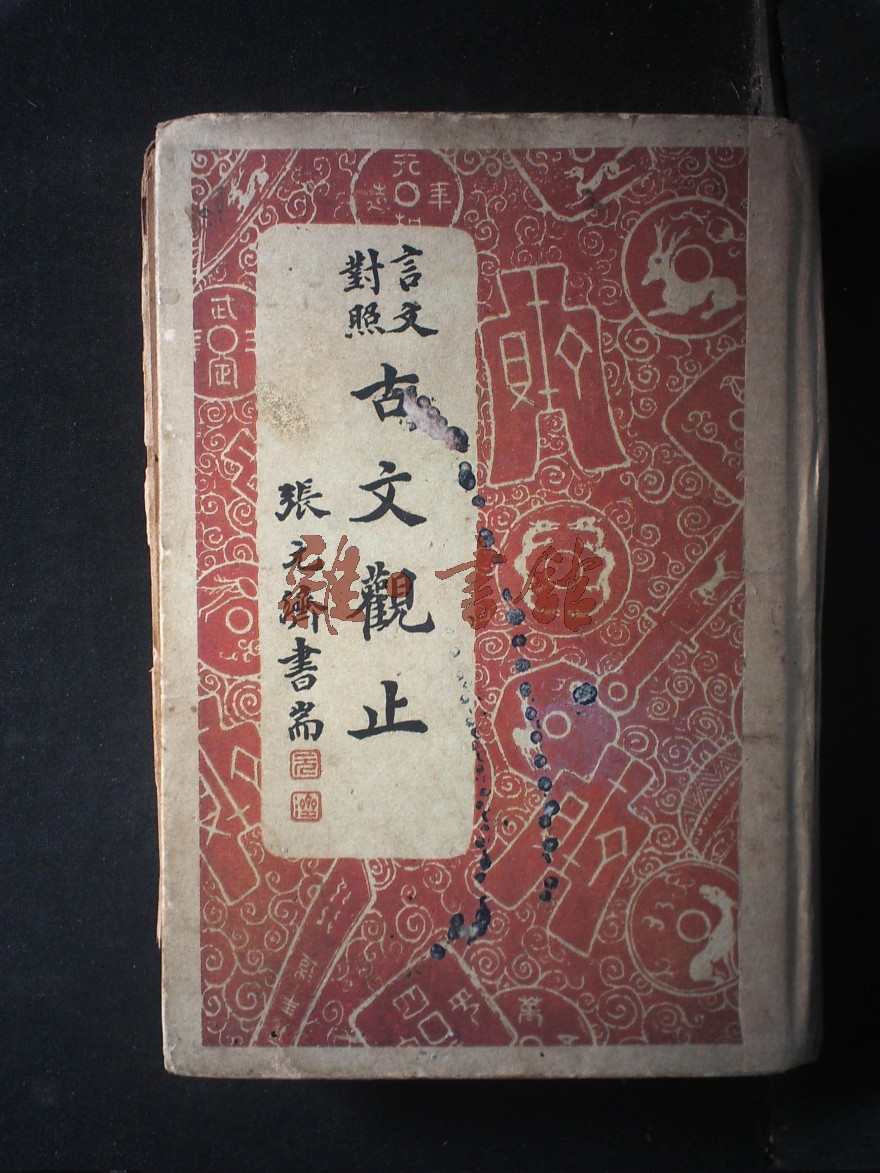 言文
對照
古文觀止
張元濟書耑
元
濟
雜·書館